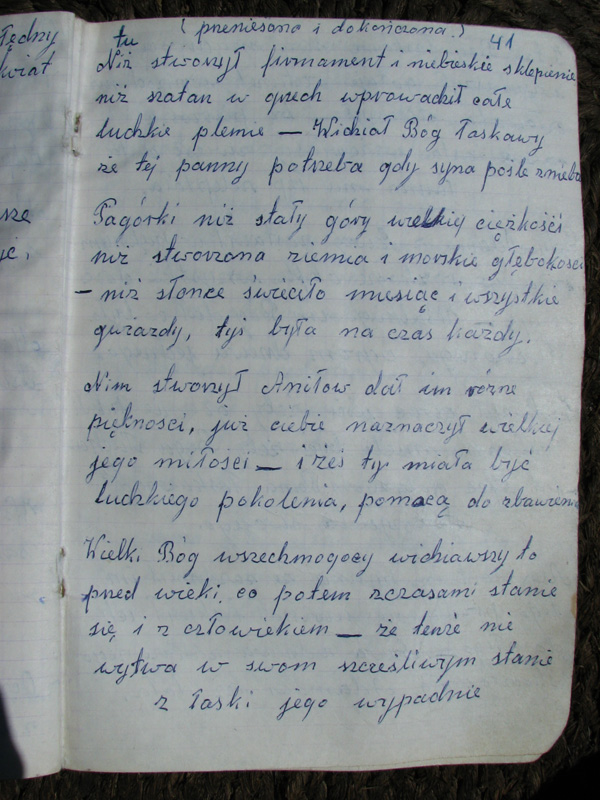 tędny
kwiat
sze
yć,
tu (przeniesona i dokończona.) 41
Niż stworzył firmament i niebieskie sklepienie
niż szatan w grzech wprowadził całe
ludzkie plemie — Widział Bóg łaskawy
że tej panny potrzeba gdy syna pośle
Pagórki niż stały góry wielkiej ciężkości
niż stworzona ziemia i morskie głębokosci
– niż słonce świeciło miesiąc i wszystkie
gwiazdy, tyś była na czas każdy.
Nim stworzył Aniłow dał im różne
pięknosci, już ciebie naznaczył wielkiej
jego miłości — i żeś ty miała być
ludzkiego pokolenia, pomocą do zbawienia
Wielki Bóg wszechmogocy widziawszy to
przed wieki, co potem zczasami stanie
się i z człowiekiem — że tenże nie
wytwa w swom szcześliwym stanie
z łaski jego wypadnie